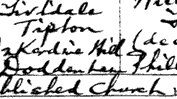 Tividale
Tipton
Kardie Hill (dec
Doddenham Phil
blished Church